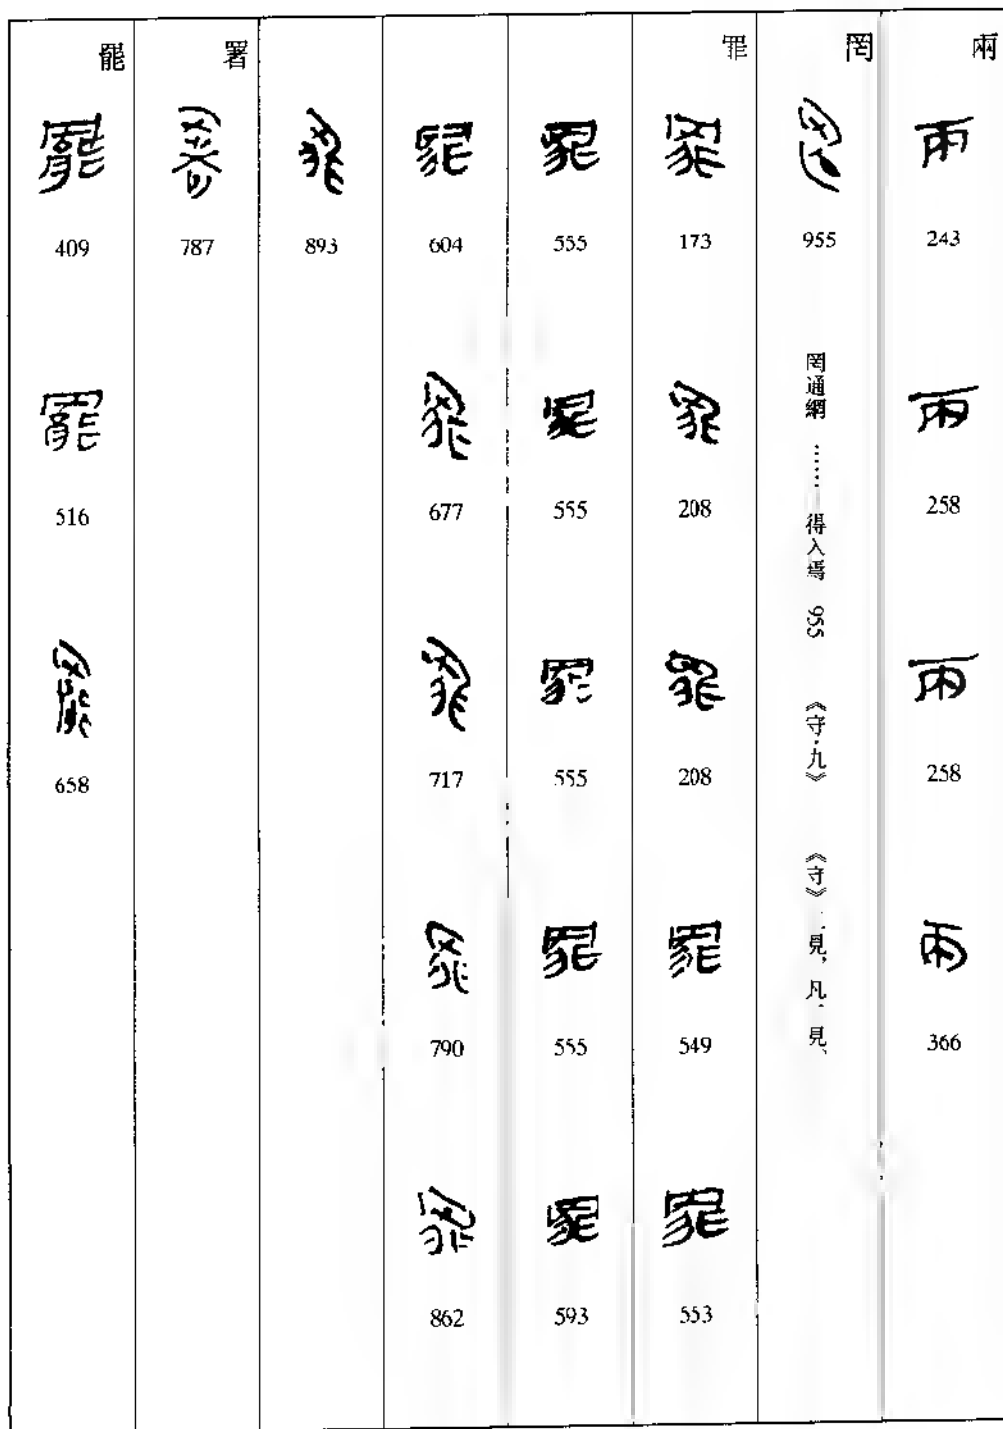 兩
243
258
258
366
罔
955
罔通網 …… 得入焉 955 《守·九》 《守》一見，凡一見。
罪
173
208
208
549
553
555
555
555
555
593
604
677
717
790
862
893
署
787
罷
409
516
658